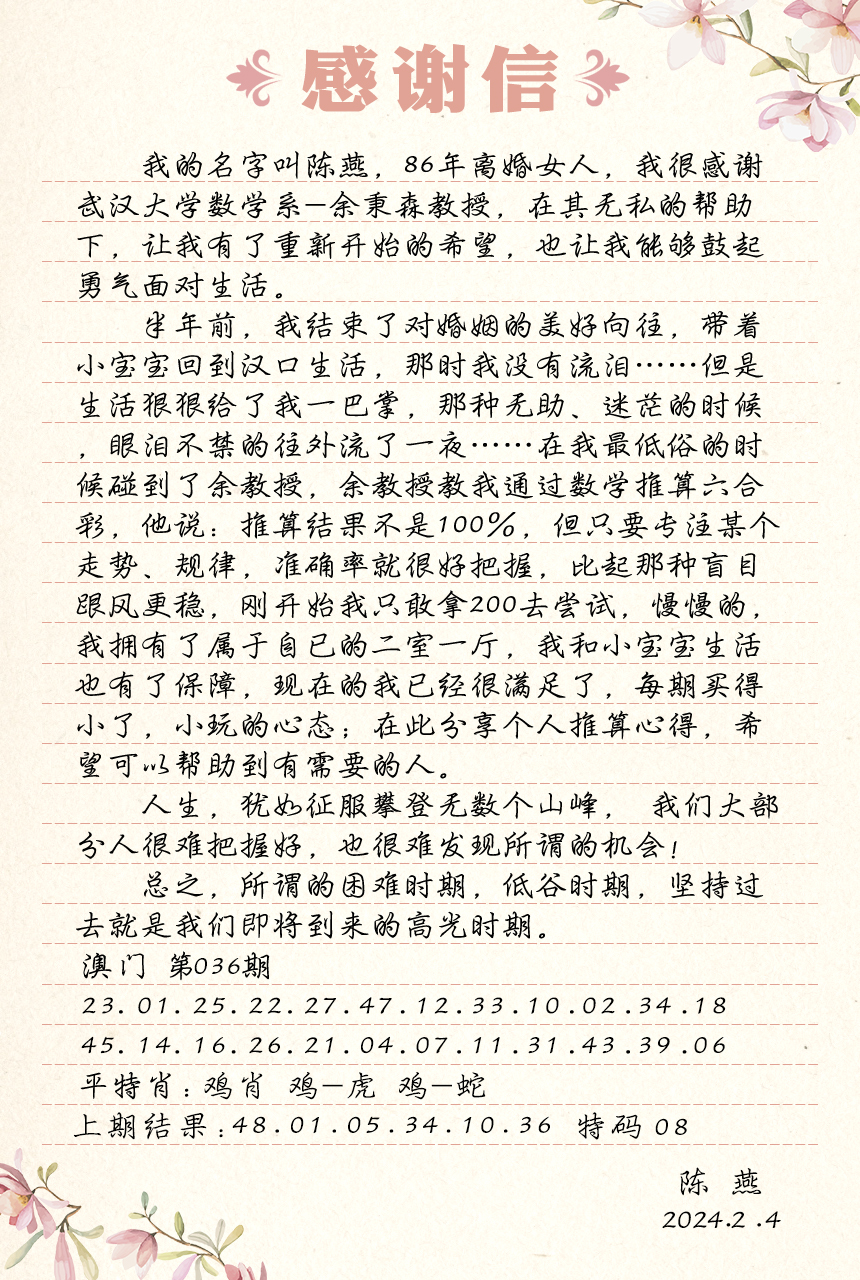 感谢信
我的名字叫陈燕，86年离婚女人，我很感谢
武汉大学数学系—余秉森教授，在其无私的帮助
下，让我有了重新开始的希望，也让我能够鼓起
勇气面对生活。
半年前，我结束了对婚姻的美好向往，带着
小宝宝回到汉口生活，那时我没有流泪……但是
生活狠狠给了我一巴掌，那种无助、迷茫的时候
，眼泪不禁的往外流了一夜……在我最低俗的时
候碰到了余教授，余教授教我通过数学推算六合
彩，他说：推算结果不是100%，但只要专注某个
走势、规律，准确率就很好把握，比起那种盲目
跟风更稳，刚开始我只敢拿200去尝试，慢慢的，
我拥有了属于自已的二室一厅，我和小宝宝生活
也有了保障，现在的我已经很满足了，每期买得
小了，小玩的心态；在此分享个人推算心得，希
望可以帮助到有需要的人。
人生，犹如征服攀登无数个山峰， 我们大部
分人很难把握好，也很难发现所谓的机会！
总之，所谓的困难时期，低谷时期，坚持过
去就是我们即将到来的高光时期。
澳门 第036期
23.01.25.22.27.47.12.33.10.02.34.18
45.14.16.26.21.04.07.11.31.43.39.06
平特肖：鸡肖 鸡—虎 鸡—蛇
上期结果：48.01.05.34.10.36 特码 08
陈 燕
2024.2.4